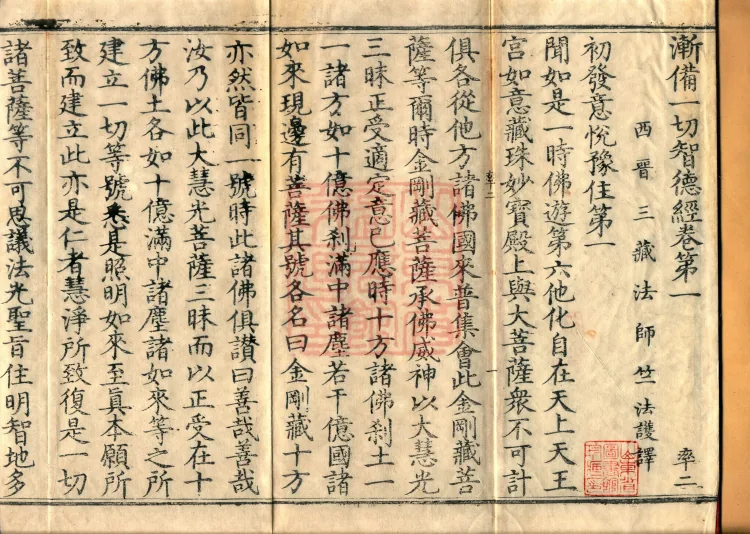 漸備一切智德經卷第一
率二
西晉三藏法師竺法護譯
初發意悅豫住第一
聞如是一時佛遊第六他化自在天上天王
宮如意藏珠妙寶殿上與大菩薩衆不可計
俱各從他方諸佛國來普集會此金剛藏菩
薩等爾時金剛藏菩薩承佛威神以大慧光
三昧正受適定意已應時十方諸佛刹土一
一諸方如十億佛刹滿中諸塵若干億國諸
如來現邊有菩薩其號各名曰金剛藏十方
亦然皆同一號時此諸佛俱讚曰善哉善哉
汝乃以此大慧光菩薩三昧而以正受在十
方佛土各如十億滿中諸塵諸如來等之所
建立一切等號悉是照明如來至眞本願所
致而建立此亦是仁者慧淨所致復是一切
諸菩薩等不可思議法光聖旨住明智地多
率二
一